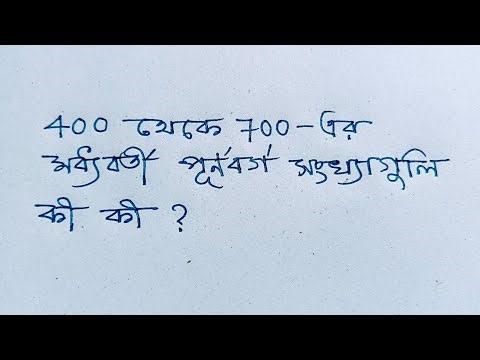 400 থেকে 700-এর
মধ্যবর্তী পূর্নবর্গ সংখ্যাগুলি
কী কী ?